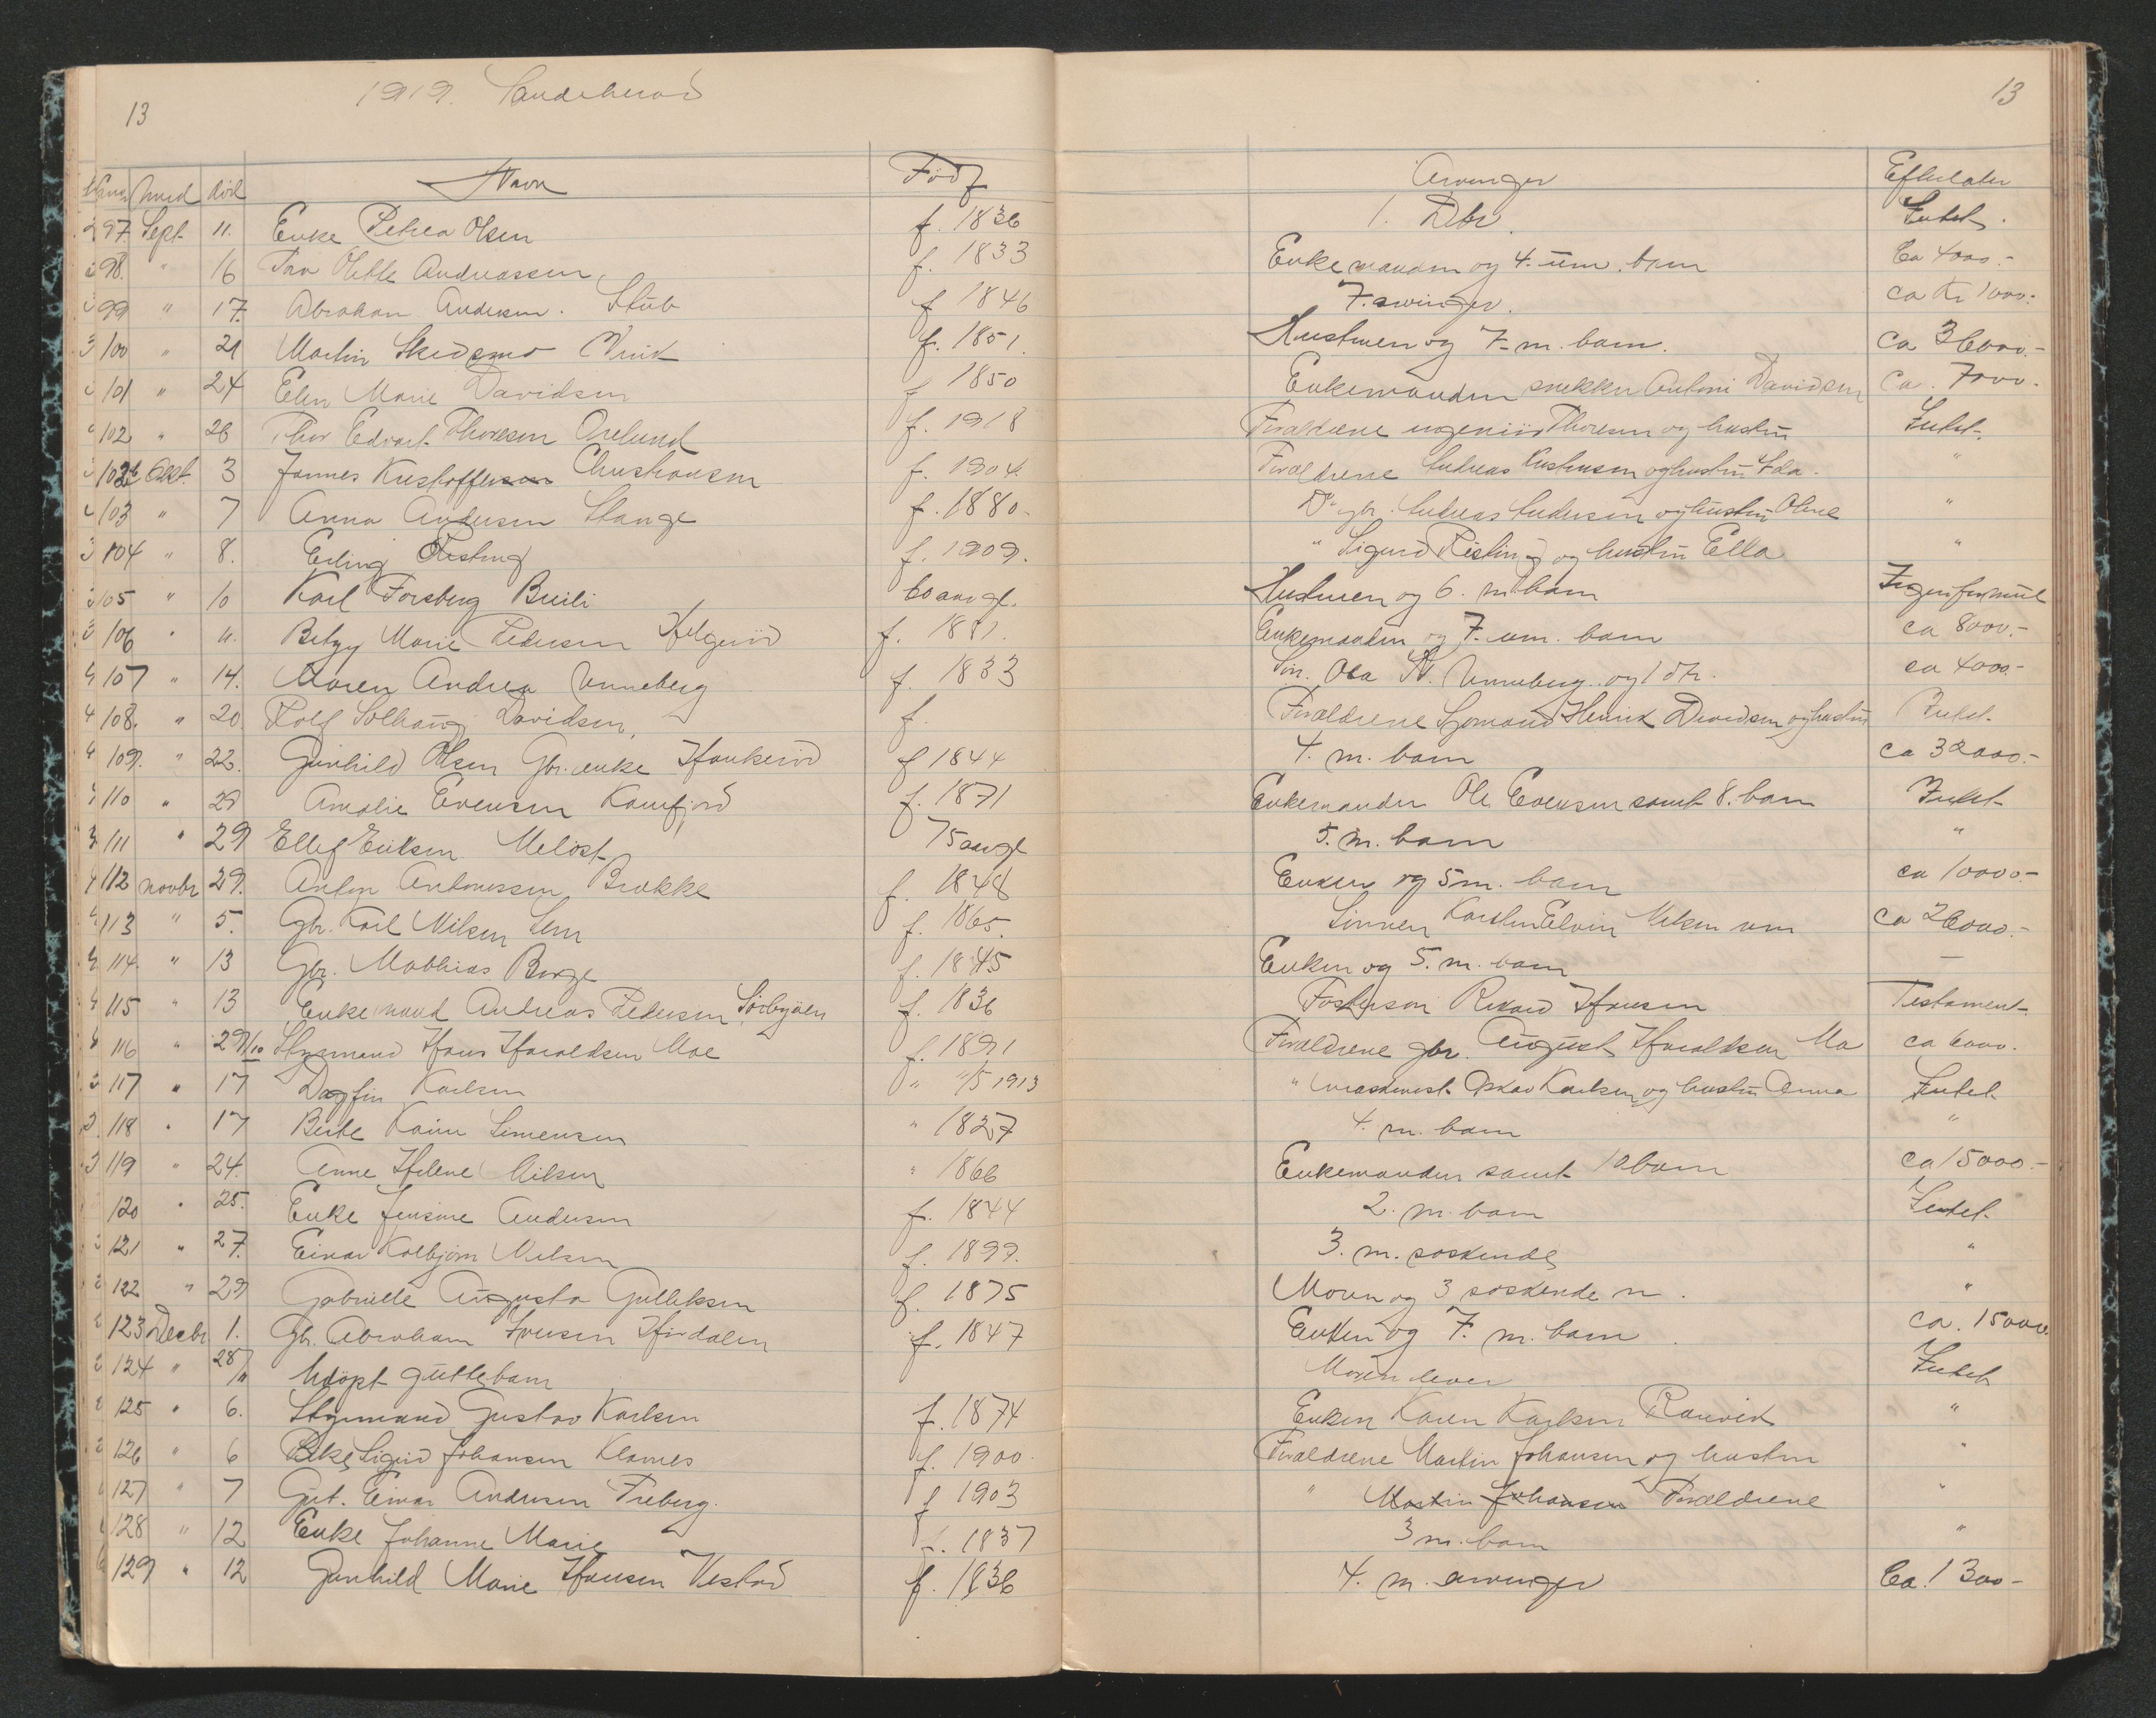 13
1919. Sandeherad
13
mnd død Navn Født Arvinger Efterlater
97. Sept. 11. Enke Petrea Olsen f. 1836 1. Dtr. Intet.
98. " 16 Fru Olette Andreassen, f. 1833 Enkemanden og 4. um. barn Ca 4000.-
99 " 17. Abraham Andersen. Stub f 1846 7. arvinger. ca kr 1000.-
100 " 21 Martin Skedsmo f. 1851. Hustruen og 7. m. barn. ca 36000.-
101 " 24 Elen Marie Davidsen f 1850 Enkemanden snekker Antoni Davidsen Ca. 7000.
102 " 26 Thor Edvart Thoresen Orelund f. 1918 Forældrene ingeniør Thoresen og hustru Intet.
102b Okt. 3 Jannes Kristoffersen Christiansen f. 1904. Forældrene Andreas Kristiansen og hustru Ida. "
103 " 7 Anna Andersen Stange f. 1880. Do gbr. Andreas Andersen og hustru Oline "
104 " 8. Erling Risting f. 1909. " Sigurd Risting og hustru Ella "
105 " 10 Karl Forsberg Bruli 60 aar gl. Hustruen og 6. m barn Ingen formue
106 " 11. Betzy Marie Pedersen Helgerød f. 1881. Enkemanden og 7. um. barn ca 8000.-
107 " 14. Maren Andrea Unneberg f. 1833 Søn. Ola St. Unneberg og 1 dtr. ca 4000.-
108. " 20. Rolf Solhaug Davidsen, f. Forældrene Sjømand Henrik Davidsen og hustru Intet.
109. " 22. Gunhild Olsen Gbr. enke Haukerød f 1844 4. m. barn ca 32000.-
110 " 29 Amalie Evensen Kamfjord f. 1871 Enkemanden Ole Evensen samt 8. barn Intet
111 " 29 Ellef Eriksen Meløst 75 aar gl 5. m. barn "
112 novbr 29. Anton Antonessen Brekke f. 1848 Enken og 5 m. barn ca 10000.-
113 " 5. Gbr. Karl Nilsen Lem f. 1865. Sønnen Karsten Elvin Nilsen um ca 26000.-
114. " 13 Gbr. Mathias Borge f. 1845 Enken og 5. m. barn —
115 " 13 Enkemand Andreas Pedersen Sørbyøen f. 1836 Fostersøn Rikard Hansen Testament.
116 " 29/10 Styrmand Hans Haraldsen Moe f. 1891 Forældrene gbr. August Haraldsen Mo ca 6000.
117 " 17 Dagfin Karlsen " 11/5 1913 " maskinist Oskar Karlsen og hustru Anna Intet
118 " 17 Berte Karin Simensen " 1827 4. m. barn "
119 " 24. Anne Helene Nilsen " 1866 Enkemanden samt 10 barn ca 15000.-
120 " 25. Enke Jensine Andersen f. 1844 2. m. barn Intet.
121 " 27. Einar Kolbjørn Nilsen f. 1899. 3. m. søskende "
122 " 29 Gabrielle Augusta Gulliksen f. 1875 Moren og 3 søskende m. "
123 Decbr 1. Gbr. Abraham Iversen Hjirdalen f. 1847 Enken og 7. m. barn ca. 15000.
124 " 28/11 Udøpt guttebarn Moren lever Intet
125 " 6. Styrmand Gustav Karlsen f. 1874 Enken Karen Karlsen Ranvik "
126 " 6 Pike Sigrid Johansen Klavnes f. 1900. Forældrene Martin Johansen og hustru "
127 " 7 Gut. Einar Andersen Freberg. f 1903 " Martin Johansen Forældrene "
128 " 12 Enke Johanne Marie f. 1837 3 m. barn "
129 " 12 Gunhild Marie Hansen Vestad f. 1836 4. m. arvinger Ca. 1300-